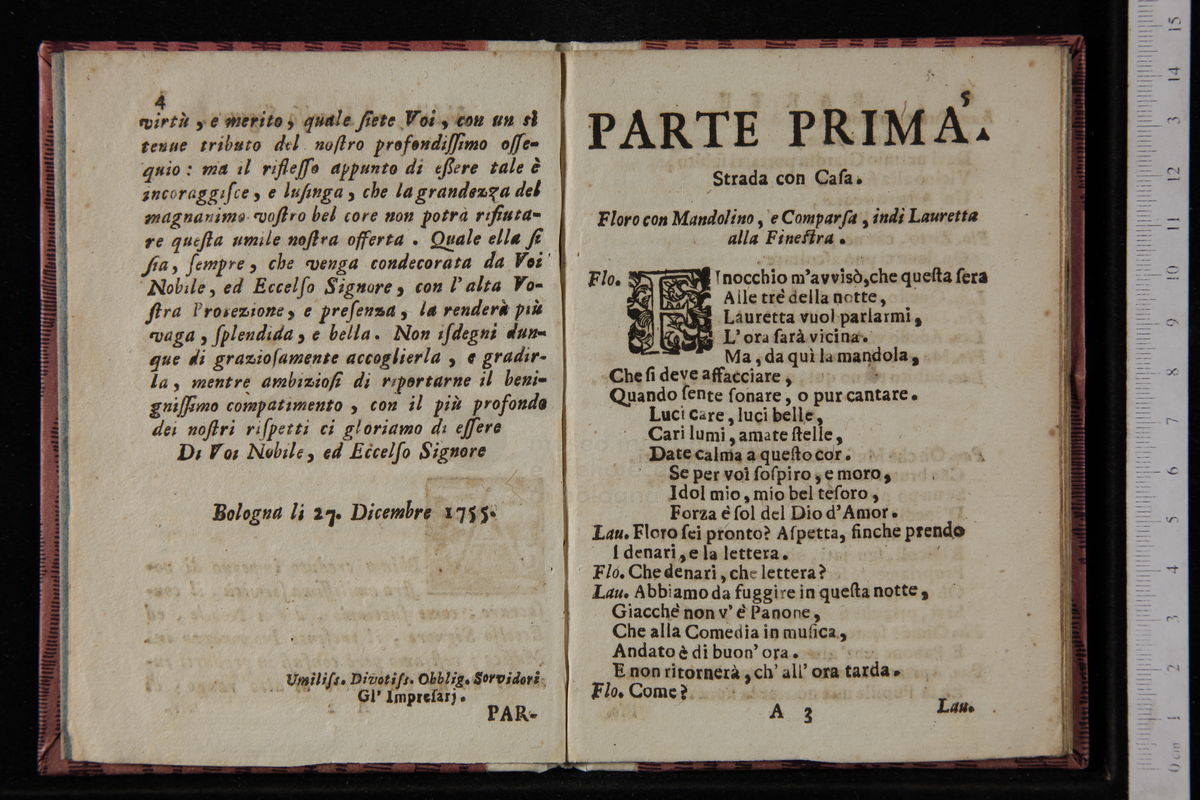 4
virtù, e merito, quale ſiete Voi, con un sì
tenue tributo del noſtro profondiſſimo oſſe-
quio: ma il rifleſſo appunto di eſſere tale è
incoraggiſce, e luſinga, che la grandezza del
magnanimo voſtro bel core non potrà rifiuta-
re queſta umile noſtra offerta. Quale ella ſi
ſia, ſempre, che venga condecorata da Voi
Nobile, ed Eccelſo Signore, con l'alta Vo-
ſtra Protezione, e preſenza, la renderà più
vaga, ſplendida, e bella. Non iſdegni dun-
que di grazioſamente accoglierla, e gradir-
la, mentre ambizioſi di riportarne il beni-
gniſſimo compatimento, con il più profondo
dei noſtri riſpetti ci gloriamo di eſſere
Di Voi Nobile, ed Eccelſo Signore
Bologna li 27. Dicembre 1755.
Umiliſs. Divotiſs. Obblig. Servidori
Gl' Impreſarj.
PAR-
5
PARTE PRIMA.
Strada con Caſa.
Floro con Mandolino, e Comparſa, indi Lauretta
alla Fineſtra.
Flo. FInocchio m'avvisò, che queſta ſera
Alle trè della notte,
Lauretta vuol parlarmi,
L' ora ſarà vicina.
Ma, da quì la mandola,
Che ſi deve affacciare,
Quando ſente ſonare, o pur cantare.
Luci care, luci belle,
Cari lumi, amate ſtelle,
Date calma a queſto cor.
Se per voi ſoſpiro, e moro,
Idol mio, mio bel teſoro,
Forza è ſol del Dio d'Amor.
Lau. Floro ſei pronto? Aſpetta, finche prendo
I denari, e la lettera.
Flo. Che denari, che lettera?
Lau. Abbiamo da fuggire in queſta notte,
Giacchè non v' è Panone,
Che alla Comedia in muſica,
Andato è di buon' ora.
E non ritornerà, ch' all' ora tarda.
Flo. Come?
A 3
Lau.
15
14
13
12
11
10
9
8
7
6
5
4
3
2
1
0 cm